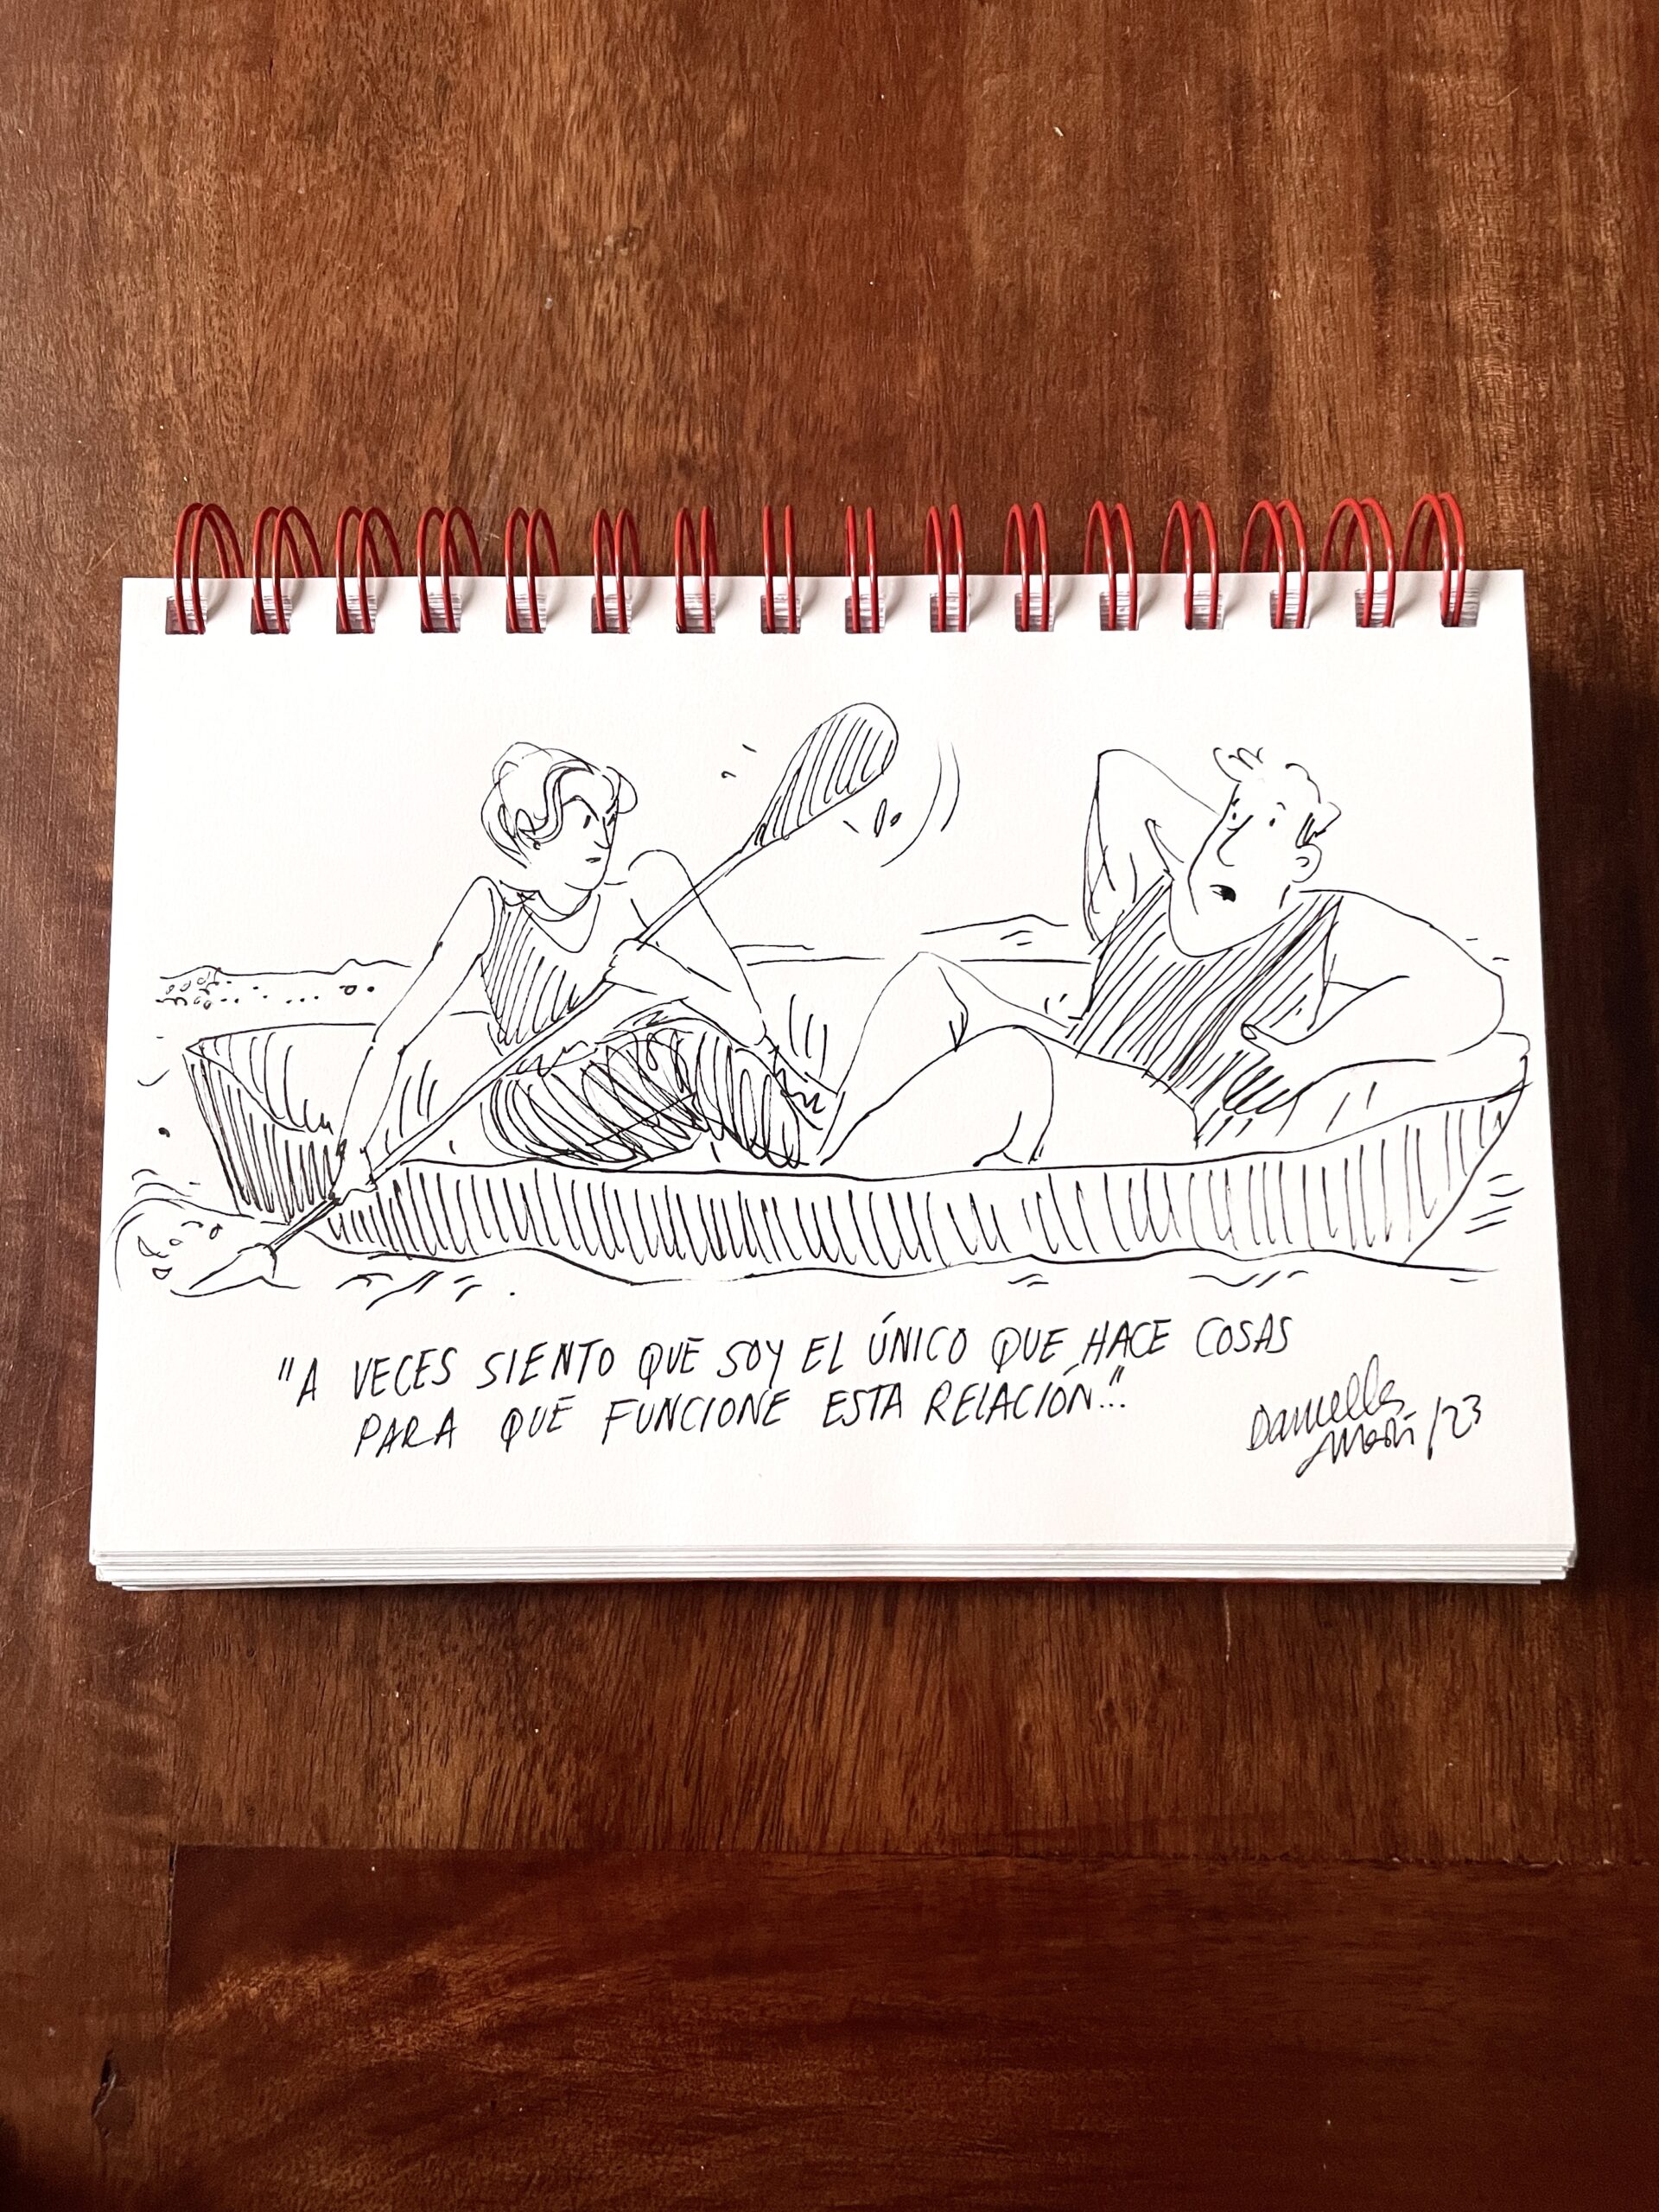 "A VECES SIENTO QUE SOY EL ÚNICO QUE HACE COSAS
PARA QUE FUNCIONE ESTA RELACIÓN..."
Daniella
Martí /23